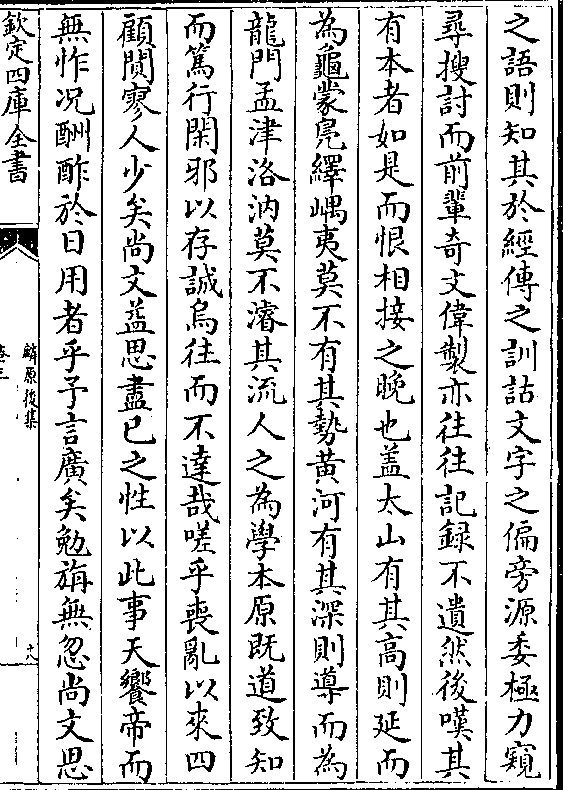 之語則知其於經傳之訓詁文字之偏旁源委極力窺
尋搜討而前輩奇文偉製亦往往記録不遺然後嘆其
有本者如是而恨相接之晚也盖太山有其高則延而
為龜蒙鳧繹嵎夷莫不有其勢黄河有其深則導而為
龍門孟津洛汭莫不濬其流人之為學本原既道致知
而篤行閑邪以存誠烏往而不達哉嗟乎喪亂以來四
顧閴寥人少矣尚文葢思盡已之性以此事天饗帝而
無怍况酬酢於日用者乎予言廣矣勉旃無忽尚文思
欽定四庫全書
麟原後集
卷三
十八